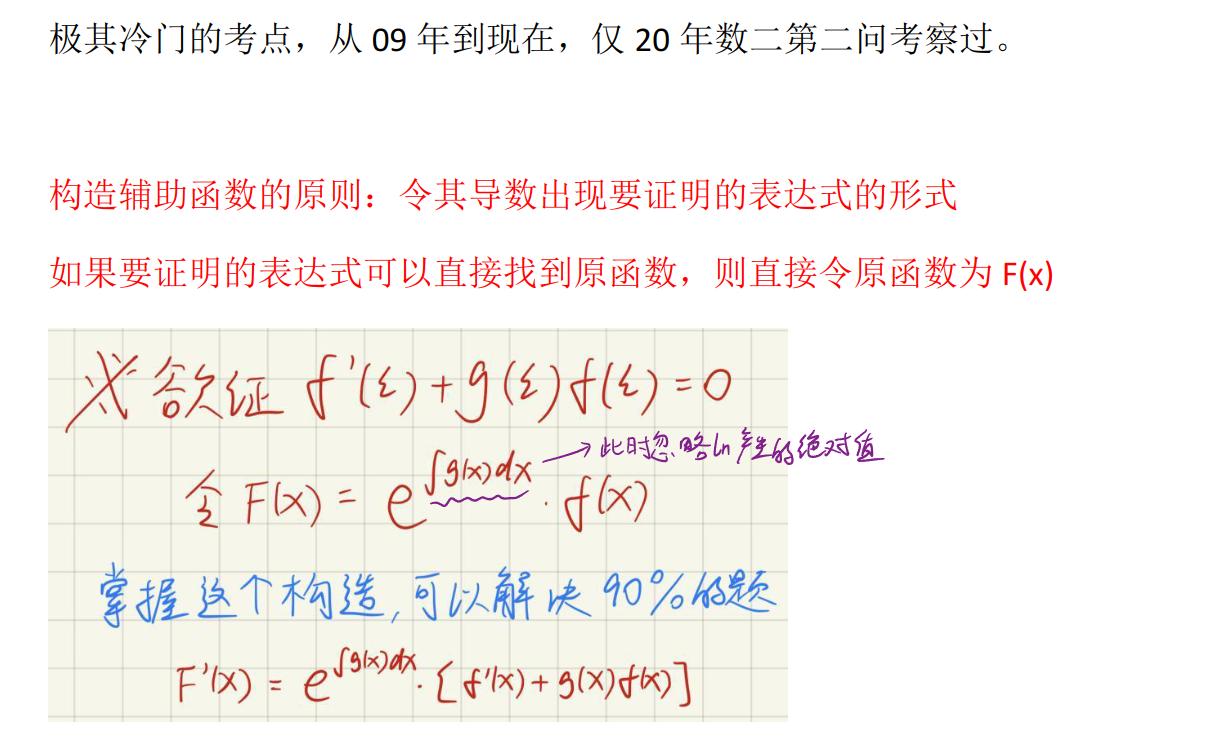 极其冷门的考点，从 09 年到现在，仅 20 年数二第二问考察过。
构造辅助函数的原则：令其导数出现要证明的表达式的形式
如果要证明的表达式可以直接找到原函数，则直接令原函数为 F(x)
※ 欲证 f'(ξ)+g(ξ)f(ξ)=0
→此时忽略ln产生的绝对值
令 F(x) = e^{∫g(x)dx} · f(x)
掌握这个构造,可以解决 90% 的题
F'(x) = e^{∫g(x)dx} · [f'(x)+g(x)f(x)]